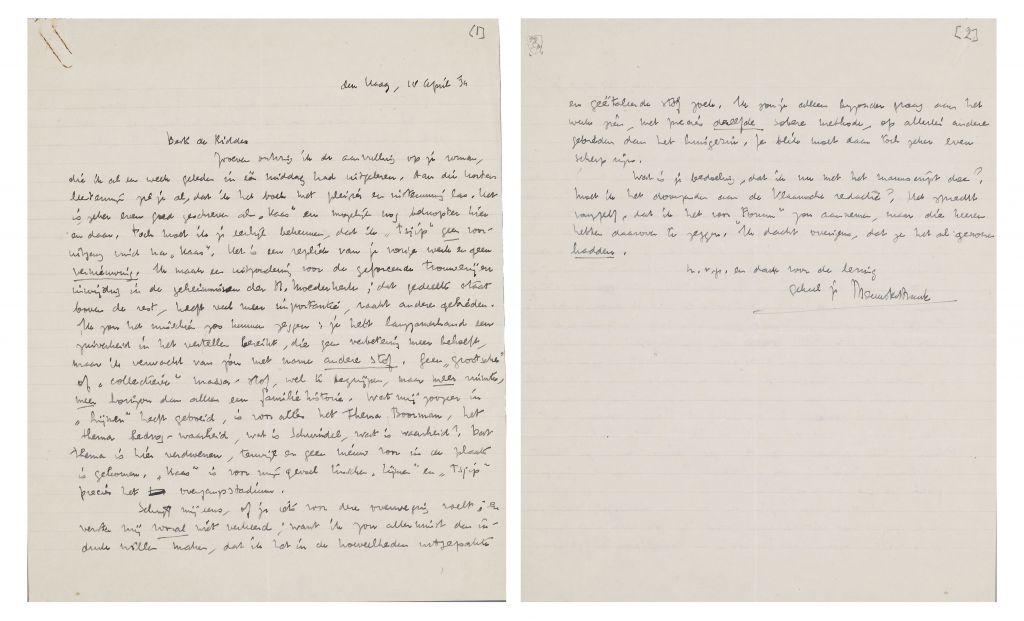 (1)
den Haag, 14 April 34
Beste de Ridder
Zooeven ontving ik de aanvulling op je roman,
die ik al een week geleden in één middag had uitgelezen. Aan die
zei je al, dat ik het boek met pleizier en las. Het
is zeker even goed geschreven als „Kaas” en mogelijk nog beknopter hier
en daar. Toch moet ik je eerlijk bekennen, dat ik „Tsjip” geen voor-
uitgang vind na „Kaas”. Het is een repliek van je vorige werk en geen
vernieuwing. Ik maak een uitzondering voor de geforceerde trouwerij en
inwijding in de geheimnissen der H. Moederkerk; dat gedeelte staat
boven de rest, heeft veel meer importantie, raakt andere gebieden.
Ik zou het misschien zoo kunnen zeggen: je hebt langzamerhand een
zuiverheid in het vertellen bereikt, die geen verbetering meer behoeft,
maar ik verwacht van jou met name andere stof. Geen „grootsche”
of „collectieve” massa-stof, wel te begrijpen, maar meer ruimte,
meer horizon dan alleen een familie historie. Wat mij zoozeer in
„Lijmen” heeft geboeid, is voor alles het thema Boorman, het
thema bedrog-waarheid, wat is Schwindel, wat is waarheid? Dat
thema is hier verdwenen, terwijl er geen nieuw voor in de plaats
is gekomen. „Kaas” is voor mijn gevoel tusschen „Lijmen” en „Tsjip”
precies het overgangsstadium.
Schrijf mij eens, of je iets voor deze overweging voelt; en
versta mij vooral niet verkeerd; want ik zou allerminst den in-
druk willen maken, dat ik het in de hoeveelheden uitgepakte
[2]
en geëtaleerde stof zoek. Ik zou je alleen bijzonder graag aan het
werk zien, met precies dezelfde sobere methode, op allerlei andere
gebieden dan het huisgezin. Je blik moet daar toch zeker even
scherp zijn.
Wat is je bedoeling, dat ik nu met het manuscript doe?
Moet ik het doorzenden aan de Vlaamsche redactie? Het spreekt
vanzelf, dat ik het voor „Forum” zou aannemen, maar die heeren
hebben daarover te zeggen. Ik dacht overigens, dat ze het al genomen
hadden.
h. v. g. en dank voor de lezing
geheel je Menno ter Braak